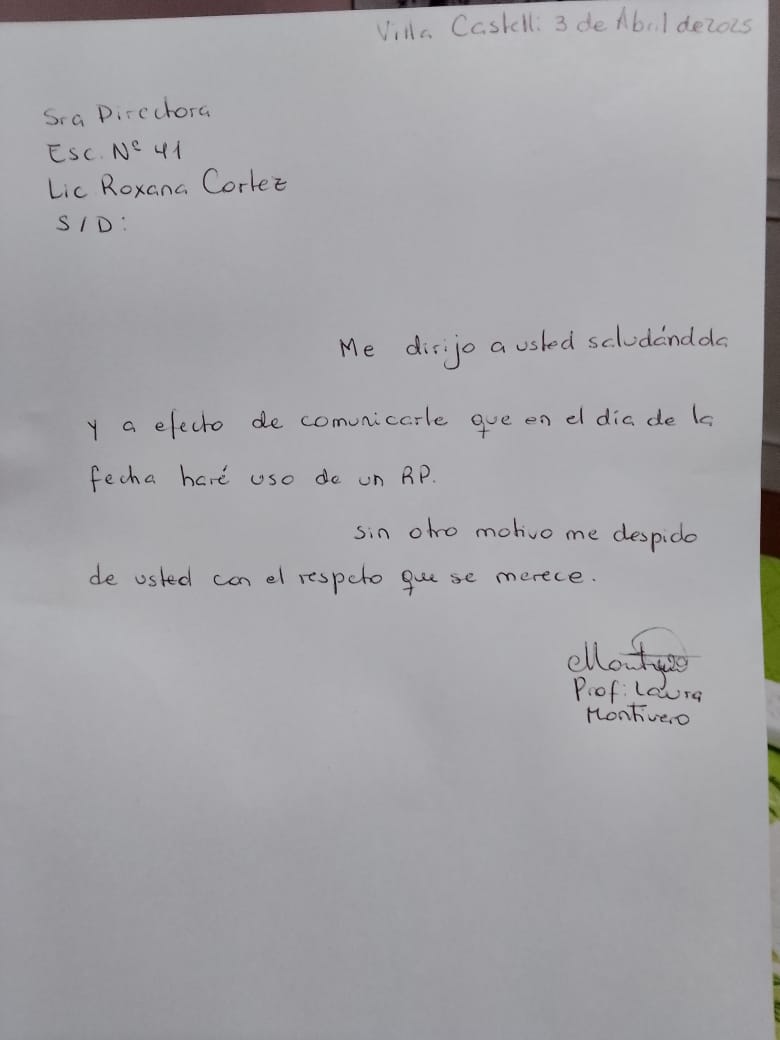 Villa Castelli 3 de Abril de 2025
Sra Directora
Esc. Nº 41
Lic Roxana Cortez
S/D:
Me dirijo a usted saludándola
y a efecto de comunicarle que en el día de la
fecha haré uso de un RP.
sin otro motivo me despido
de usted con el respeto que se merece.
Prof: Laura
Montivero